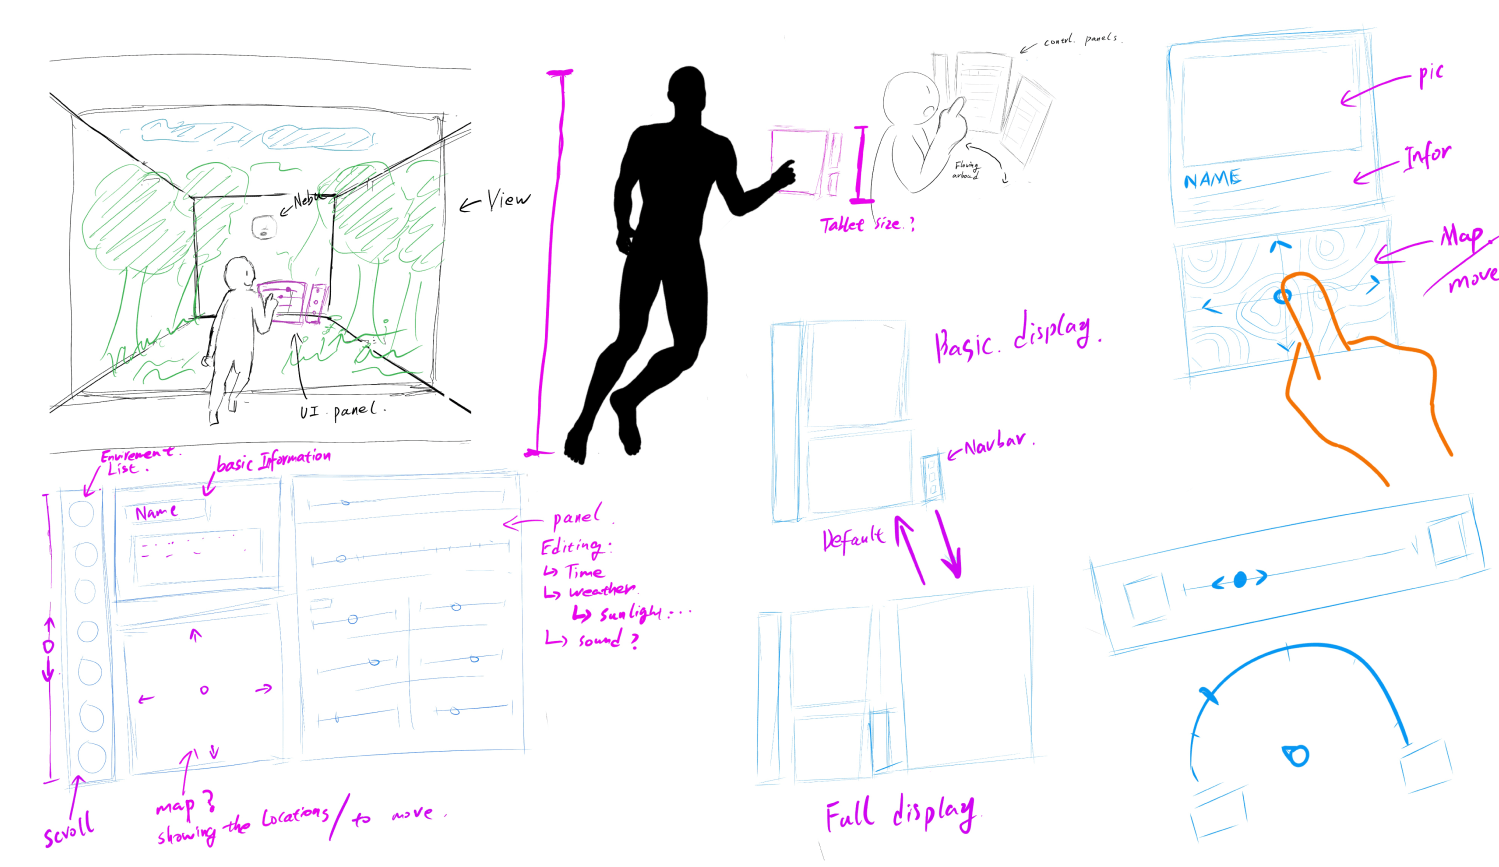 View
UI panel.
contrl. panels.
Tablet size?
pic
Infor
NAME
Map
move
Basic display.
Navbar.
Default
Full display
List.
basic Information
Name
panel
Editing:
↳ Time
↳ weather
↳ sunlight...
↳ sound?
scroll
map?
showing the Locations / to move.